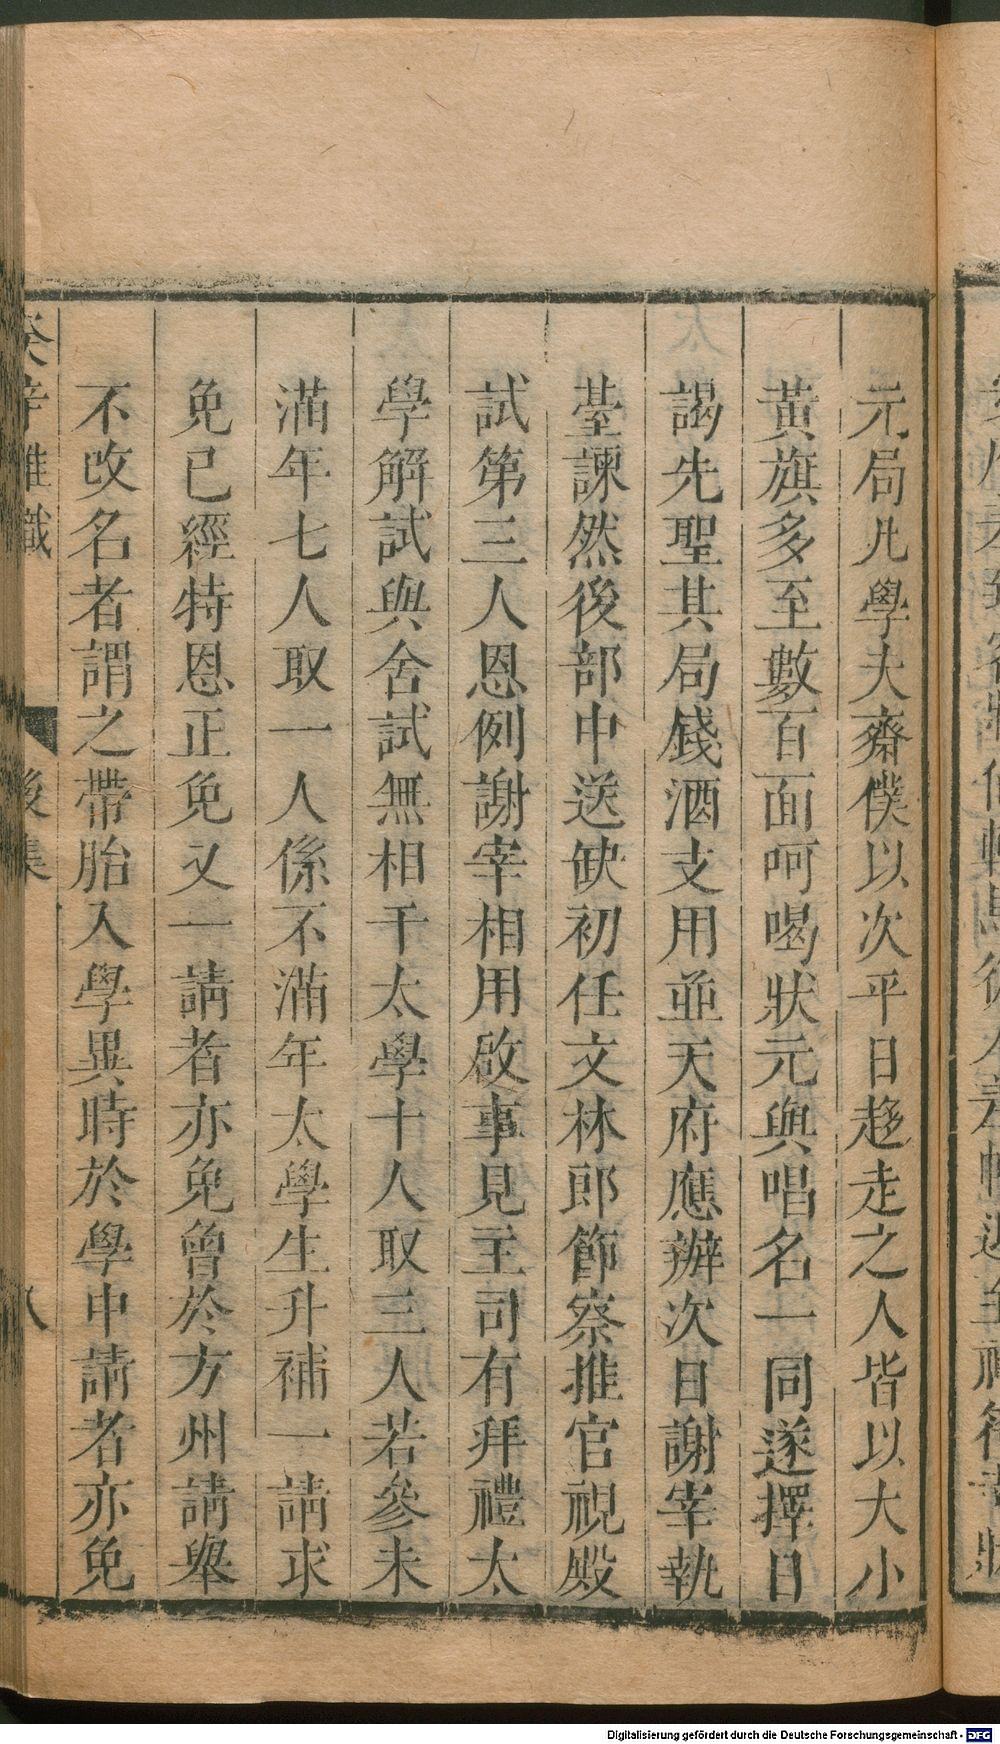 元局凡學夫齋僕以次平日趍走之人皆以大小
黃旗多至數百面呵喝狀元與唱名一同遂擇日
謁先聖其局錢酒支用並天府應辦次日謝宰執
臺諫然後部中送缺初任文林郎節察推官視殿
試第三人恩例謝宰相用啟事見主司有拜禮太
學解試與舍試無相干太學十人取三人若參未
滿年七人取一人係不滿年太學生升補一請求
免已經特恩正免又一請者亦免曾於方州請舉
不改名者謂之帶胎入學異時於學中請者亦免
癸辛雜識 後集 八
Digitalisierung gefördert durch die Deutsche Forschungsgemeinschaft - DFG